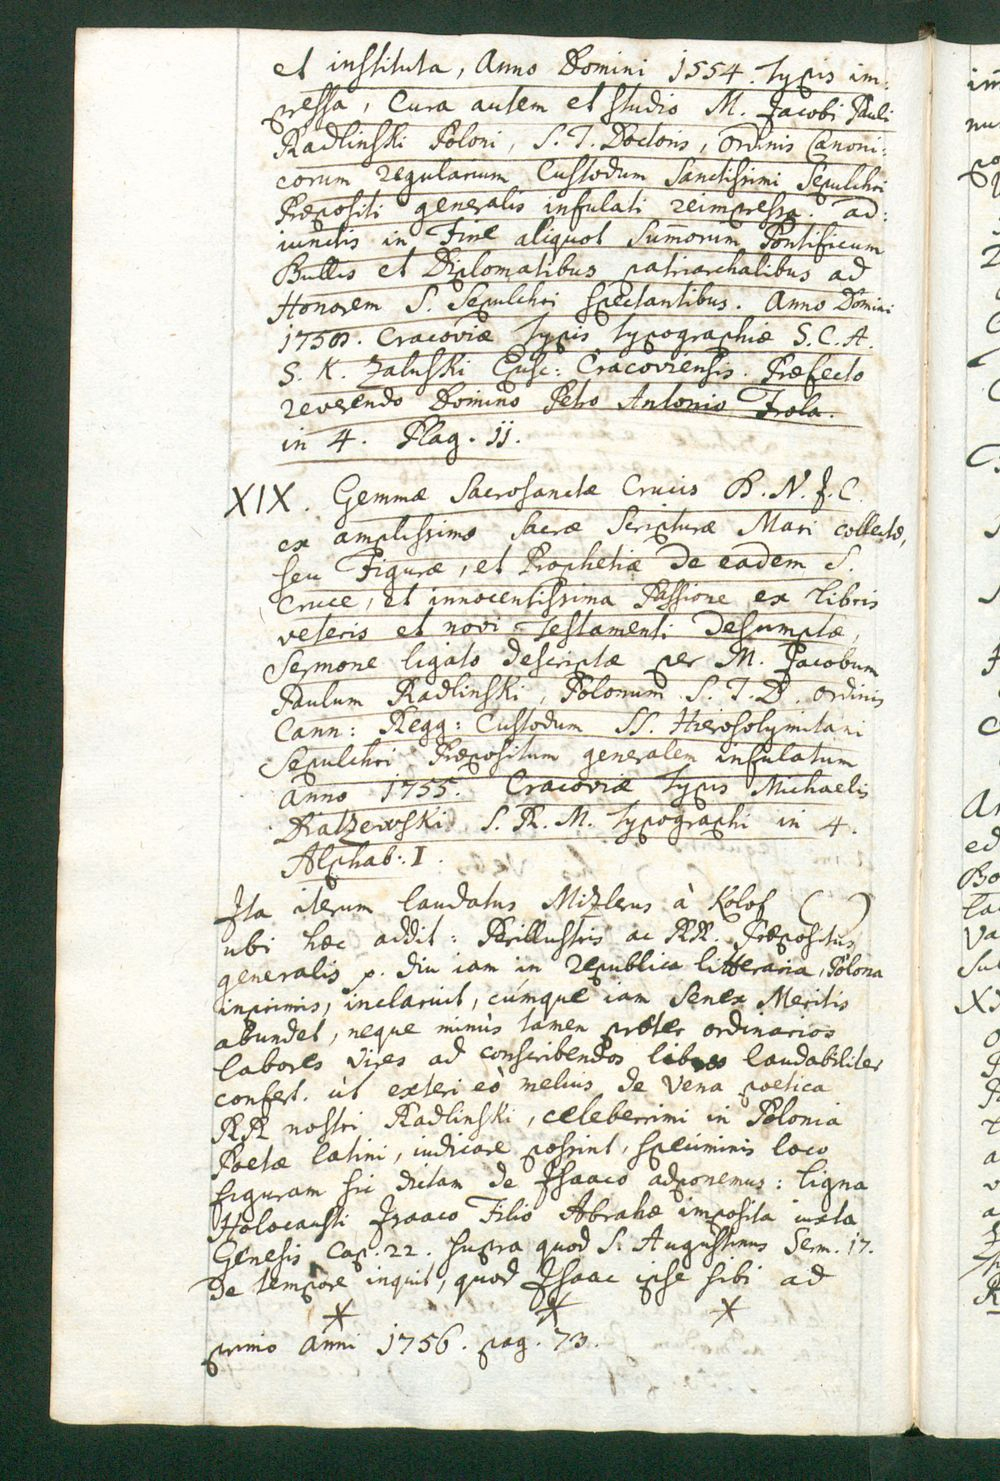 et instituta, Anno Domini 1554. typis im-
pressa, Cura autem et studio M. Jacobi Pauli
Radlinski Poloni, S. T. Doctoris, Ordinis Canoni:
corum regularium Custodum Sanctissimi Sepulchri
Præpositi generalis infulati reimpressa. ad:
iunctis in Fine aliquot Sum̄orum Pontificum
Bullis et Diplomatibus patriarchalibus ad
Honorem S. Sepulchri spectantibus. Anno Domini
Cracoviæ typis typographiæ S. C. A.
S. K. Zaluski Episc: Cracoviensis. Præfecto
reverendo Domino Petro Antonio Trola.
in 4. Plag. 11.
XIX. Gemmæ Sacrosanctæ Crucis D. N. J. C.
ex amplissimo sacræ Scripturæ Mari collectæ,
seu Figuræ, et Prophetiæ de eadem S.
Cruce, et innocentissima Passione ex libris
veteris et novi Testamenti desumptæ,
Sermone ligato descriptæ per M. Jacobum
Paulum Radlinski, Polonum S. T. D. ordinis
Cann: Regg: Custodum SS. Hierosolymitani
Sepulchri Præpositum generalem infulatum
anno 1755. Cracoviæ typis Michaelis
S. R. M. typographi in 4.
Alphab: I.
Ita iterum laudatus Mizlerus à Kolof ( )
ubi hæc addit: Perillustris ac RR. Præpositus
generalis p. diu iam in republica litteraria, Polona
inprimis, inclaruit, cúmque iam senex Meritis
abundet, neque minùs tamen præter ordinarios
labores vires ad conscribendos libros laudabiliter
confert. ùt exteri eò melius de Vena poetica
RR nostri Radlinski, celeberrimi in Polonia
Poetæ latini, iudicare possint, speciminis loco
figuram sic dictam de Isaaco adponemus: ligna
Holocausti Isaaco Filio Abrahæ imposita iuxta
Genesis Cap. 22. supra quod S. Augustinus Sem. 17.
de tempore inquit, quod Isaac ipse sibi ad
* * *
primo anni 1756. pag. 73.